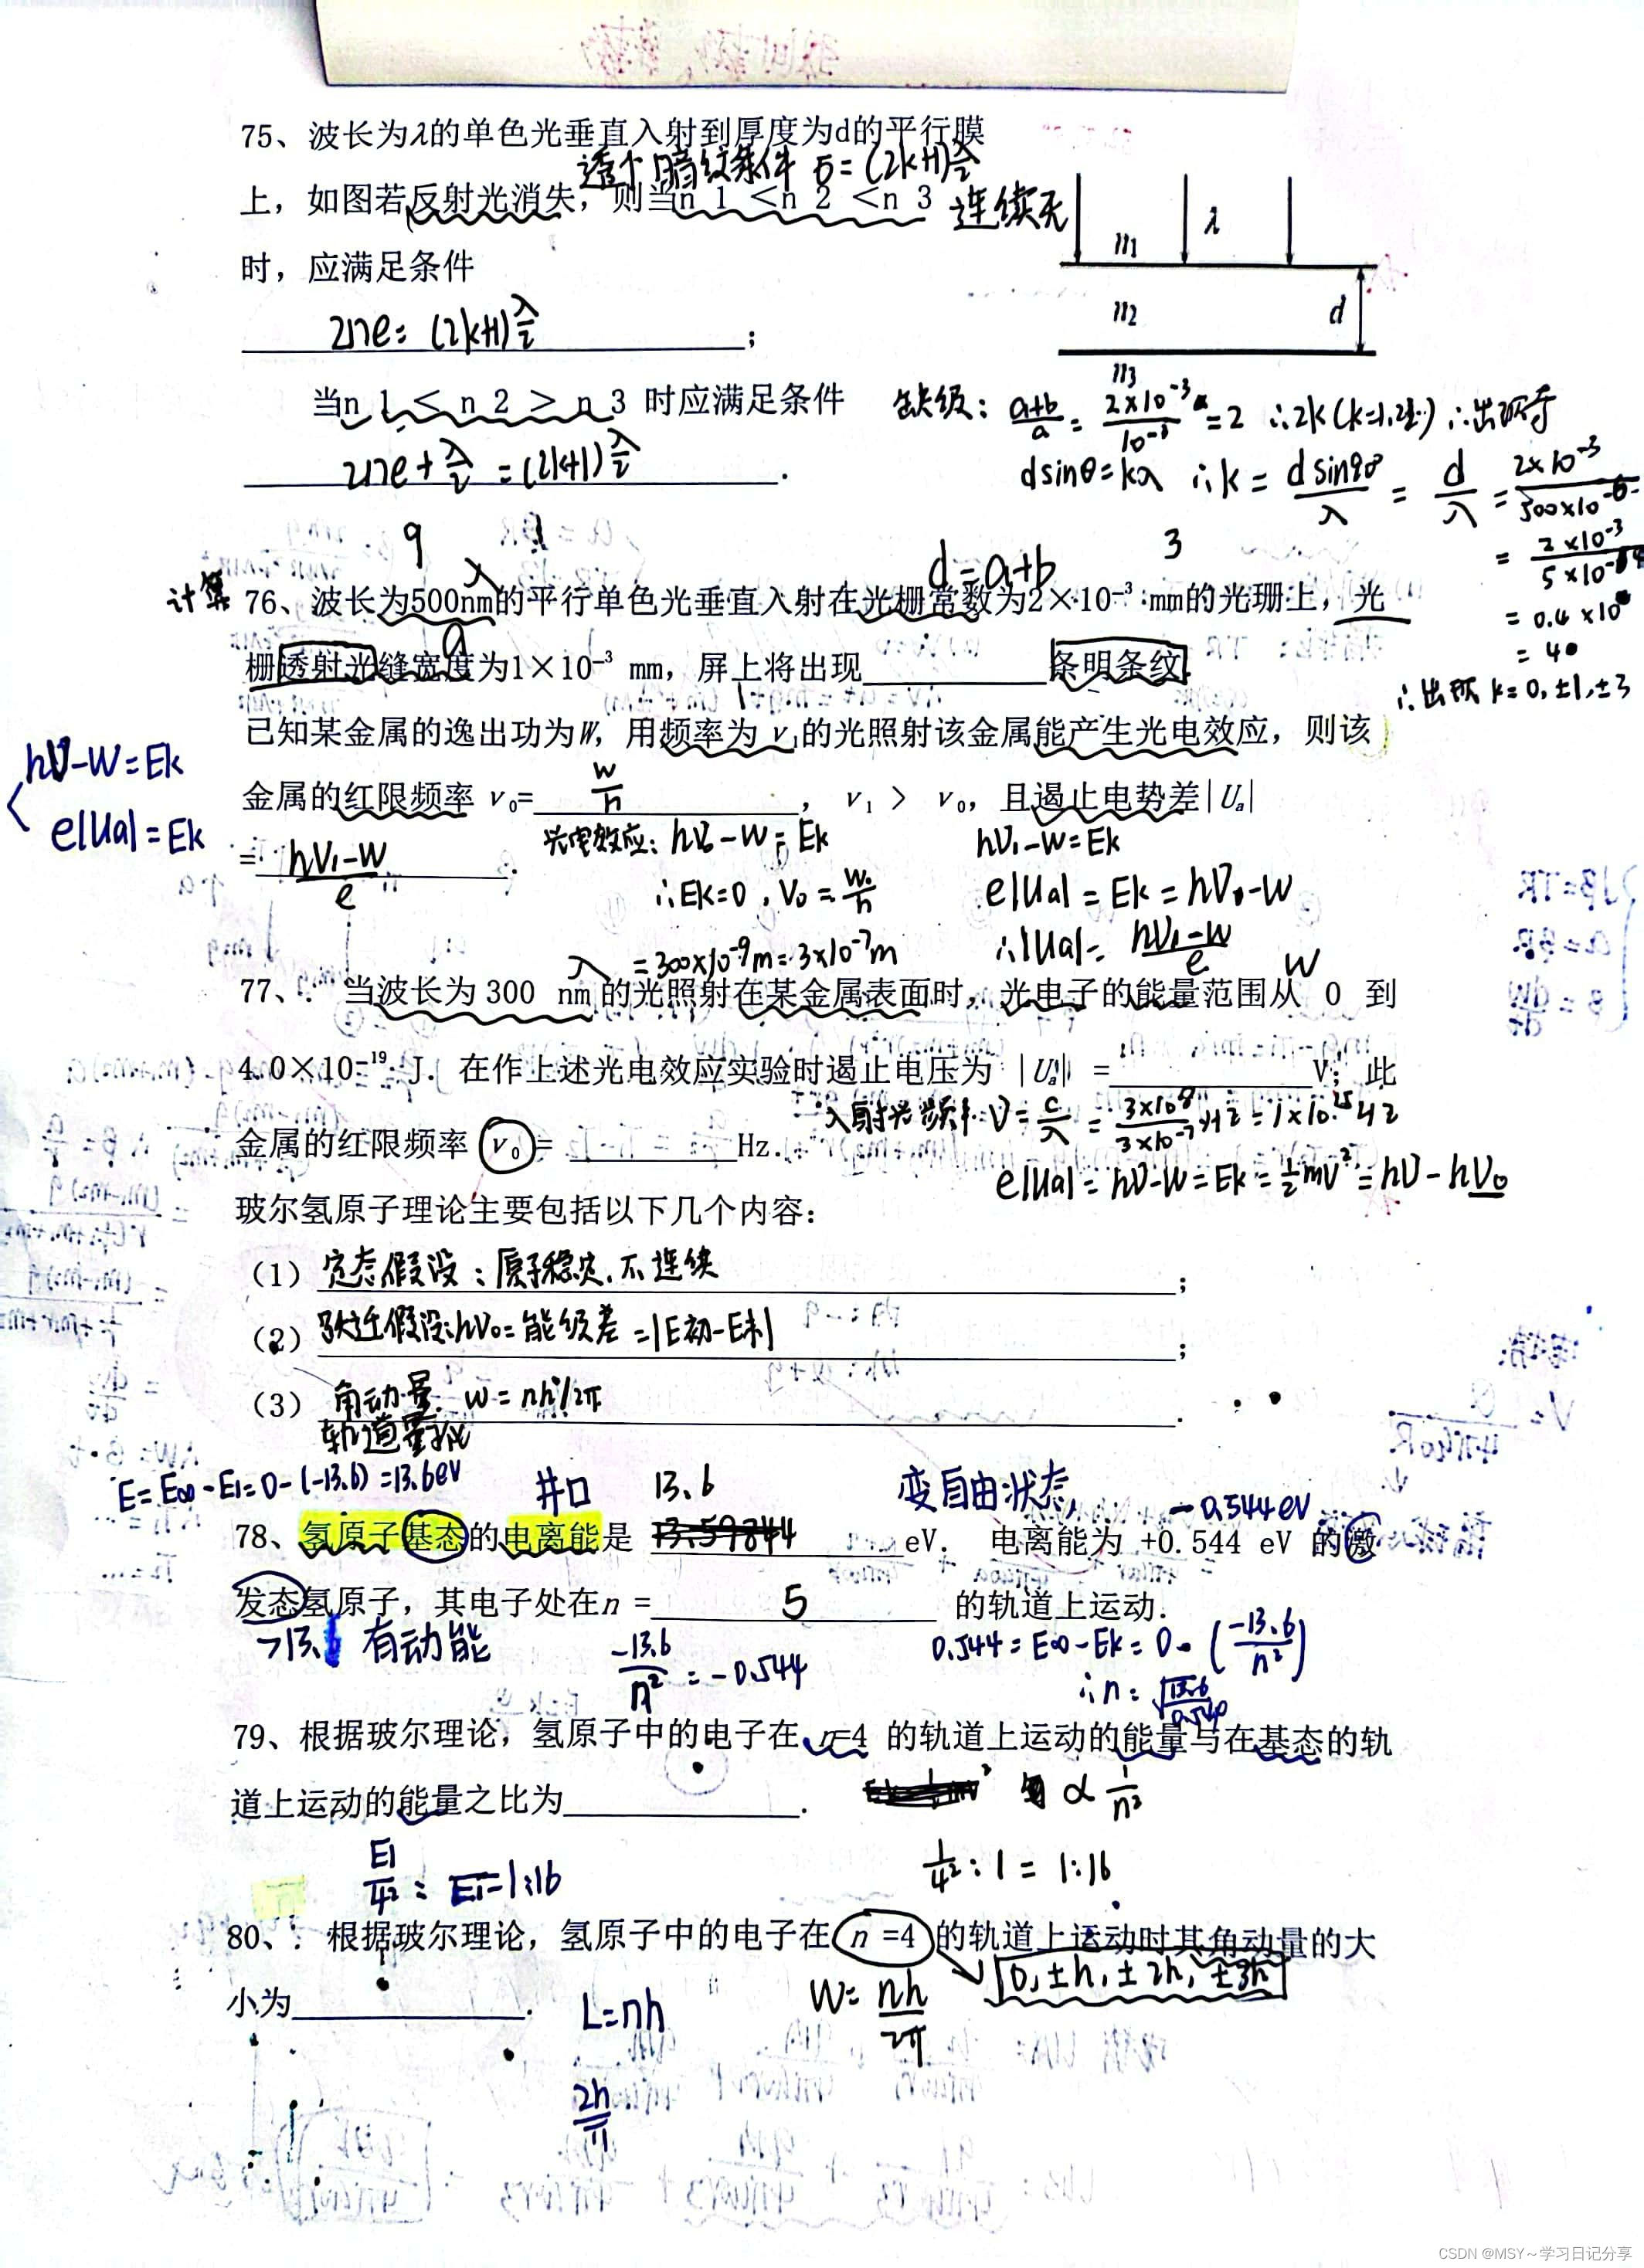 75、波长为λ的单色光垂直入射到厚度为d的平行膜
透个暗纹条件 δ=(2k+1)λ/2
上，如图若反射光消失，则当n 1 <n 2 <n 3 连续无
时，应满足条件
2ne=(2k+1)λ/2 ;
λ
n₁
n₂
d
n₃
当n 1 < n 2 > n 3 时应满足条件
2ne+λ/2=(2k+1)λ/2 .
缺级: (a+b)/a = 2×10⁻³/10⁻³ =2 ∴2k(k=1,2…)
dsinθ=kλ ∴k= dsin90°/λ = d/λ = 2×10⁻³/500×10⁻⁶
= 2×10⁻³
= 0.4×10
= 4
∴出现 k=0,±1,±3
d=a+b 3
计算 76、波长为500nm的平行单色光垂直入射在光栅常数为2×10⁻³ mm的光珊上，光
λ
a
栅透射光缝宽度为1×10⁻³ mm，屏上将出现 条明条纹.
已知某金属的逸出功为W，用频率为 ν₁的光照射该金属能产生光电效应，则该
hν-W=Ek
e|Ua|=Ek
金属的红限频率 ν₀= W/h ， ν₁ > ν₀，且遏止电势差|Uₐ|
= hν₁-W/e .
光电效应: hν-W=Ek
∴Ek=0，ν₀=W/h
hν₁-W=Ek
e|Ua|=Ek=hν-W
∴|Ua|= hν₁-W/e
λ =300×10⁻⁹m=3×10⁻⁷m
W
77、. 当波长为 300 nm 的光照射在某金属表面时，光电子的能量范围从 0 到
4.0×10⁻¹⁹ J. 在作上述光电效应实验时遏止电压为 |Uₐ| = V；此
入射光频率ν= c/λ = 3×10⁸/3×10⁻⁷ Hz=1×10¹⁵Hz
金属的红限频率 ν₀ = Hz.
e|Ua|=hν-W=Ek=½mv²=hν-hν₀
玻尔氢原子理论主要包括以下几个内容:
（1）定态假设: 原子稳定,不连续 ;
（2）跃迁假设:hν₀=能级差=|E初-E末| ;
（3）角动量. w=nh/2π .
轨道量子化
E=E∞-E₁=0-(-13.6)=13.6eV
井口 13.6 变自由状态,
-0.544eV
78、氢原子基态的电离能是 13.59844 eV. 电离能为 +0.544 eV 的激
发态氢原子，其电子处在n = 5 的轨道上运动.
>13.6 有动能
-13.6/n² =-0.544
0.544=E∞-Ek=0-(-13.6/n²)
∴n=
79、根据玻尔理论，氢原子中的电子在 n=4 的轨道上运动的能量与在基态的轨
道上运动的能量之比为 .
∝ 1/n²
E1/4² : E1=1:16
1/4² :1 = 1:16
80、. 根据玻尔理论，氢原子中的电子在 n =4 的轨道上运动时其角动量的大
0,±h,±2h,±3h
小为 .
L=nh
W= nh/2π
2h/π
CSDN @MSY～学习日记分享